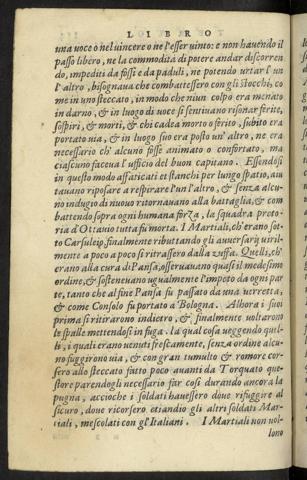 LIBRO
una uoce o nel uincere o ne l'esser uinto: e non hauendo il
passo libero, ne la commodità di potere andar discorren
do, impediti da fossi e da paduli, ne potendo urtar l'un
l'altro, bisognaua che combattessero con gli stocchi, co
me in uno steccato, in modo che niun colpo era menato
in darno, & in luogo di uoce si sentiuano risonar ferite,
sospiri, & morti, & chi cadea morto o ferito, subito era
portato uia, & in luogo suo era posto un' altro, ne era
necessario ch' alcuno fosse animato o confortato, ma
ciascuno faceua l'ufficio del buon capitano. Essendosi
in questo modo affaticati et stanchi per lungo spatio, aiu
tauano riposare a respirare l'un l'altro, & senza alcu
no indugio di nuouo ritornauano alla battaglia, & com
battendo sopra ogni humana forza, la squadra preto-
ria d'Ottauio tutta fu morta. I Martiali, ch'erano sot-
to Carsuleio, finalmente ributtando gli auuersarij uiril-
mente a poco a poco si ritrassero dalla zuffa. Quelli, ch'
erano alla cura di Pansa, osseruauano quasi il medesimo
ordine, & sosteneuano ugualmente l'impeto da ogni par
te, tanto che al fine Pansa fu passato da una uerretta,
& come Consolo fu portato a Bologna. Allhora i suoi
prima si ritirarono indietro, & finalmente uoltarono
le spalle mettendosi in fuga. la qual cosa ueggendo quel-
li, i quali erano uenuti frescamente, senza ordine alcu-
no fuggirono uia, & con gran tumulto & romore cor-
sero allo steccato fatto poco auanti da Torquato que-
store parendogli necessario far così durando ancora la
pugna, accioche i soldati hauessero doue rifuggire al
sicuro, doue ricorsero etiandio gli altri soldati Mar-
tiali, mescolati con gl'Italiani. I Martiali non uol-
lono